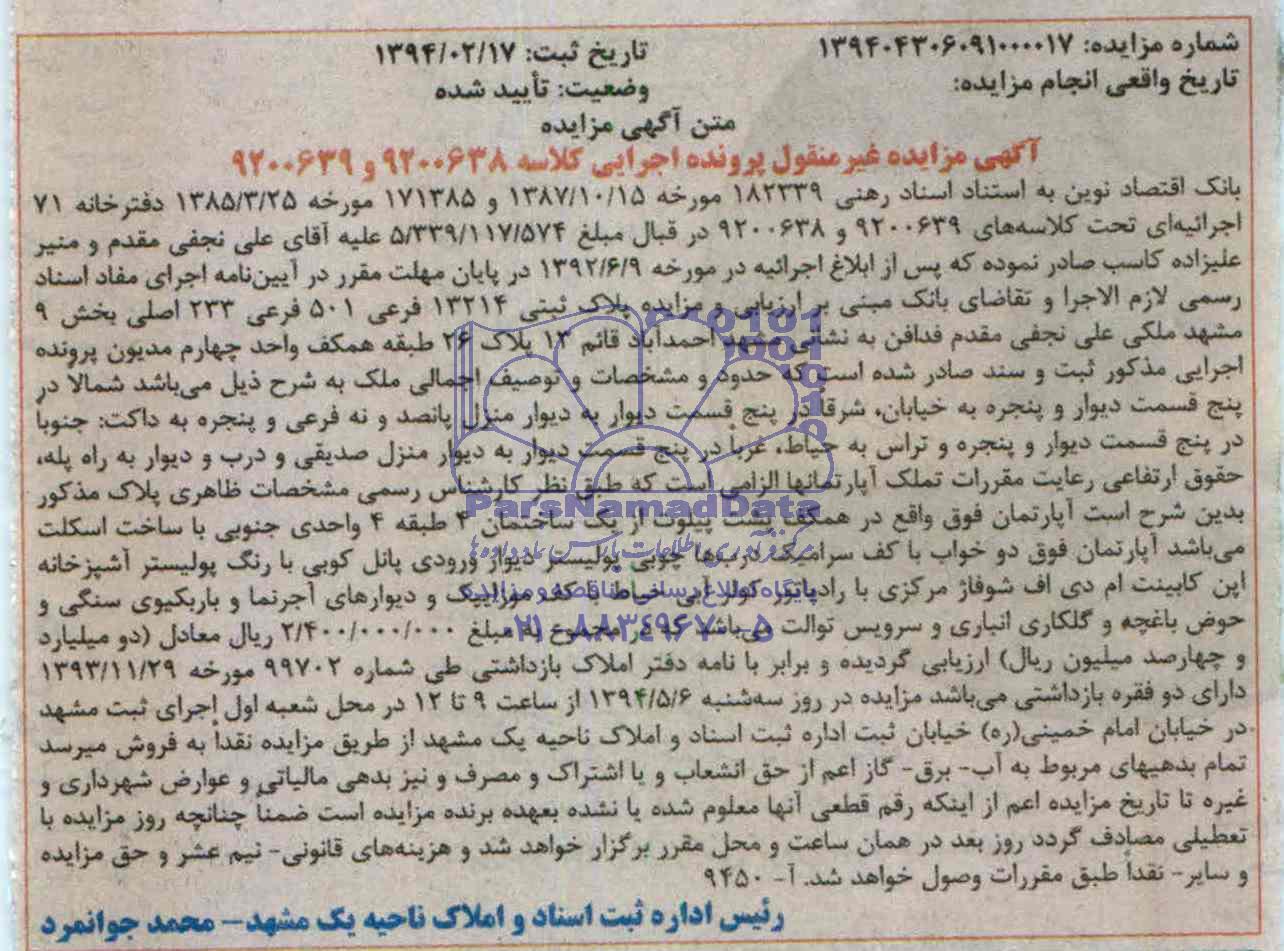 شماره مزایده: ۱۳۹۴۰۴۳۰۶۰۹۱۰۰۰۰۱۷
تاریخ ثبت: ۱۳۹۴/۰۲/۱۷
تاریخ واقعی انجام مزایده:
وضعیت: تأیید شده
متن آگهی مزایده
آگهی مزایده غیرمنقول پرونده اجرایی کلاسه ۹۲۰۰۶۳۸ و ۹۲۰۰۶۳۹
بانک اقتصاد نوین به استناد اسناد رهنی ۱۸۲۳۳۹ مورخه ۱۳۸۷/۱۰/۱۵ و ۱۷۱۳۸۵ مورخه ۱۳۸۵/۳/۲۵ دفترخانه ۷۱
اجرائیه‌ای تحت کلاسه‌های ۹۲۰۰۶۳۹ و ۹۲۰۰۶۳۸ در قبال مبلغ ۵/۳۳۹/۱۱۷/۵۷۴ علیه آقای علی نجفی مقدم و منیر
علیزاده کاسب صادر نموده که پس از ابلاغ اجرائیه در مورخه ۱۳۹۲/۶/۹ در پایان مهلت مقرر در آیین‌نامه اجرای مفاد اسناد
رسمی لازم الاجرا و تقاضای بانک مبنی بر ارزیابی و مزایده پلاک ثبتی ۱۳۲۱۴ فرعی ۵۰۱ فرعی ۲۳۳ اصلی بخش ۹
مشهد ملکی علی نجفی مقدم فدافن به نشانی مشهد احمدآباد قائم ۱۳ پلاک ۲۶ طبقه همکف واحد چهارم مدیون پرونده
اجرایی مذکور ثبت و سند صادر شده است که حدود و مشخصات و توصیف اجمالی ملک به شرح ذیل می‌باشد شمالا در
پنج قسمت دیوار و پنجره به خیابان، شرقاً در پنج قسمت دیوار به دیوار منزل پانصد و نه فرعی و پنجره به داکت: جنوباً
در پنج قسمت دیوار و پنجره و تراس به حیاط، غرباً در پنج قسمت دیوار به دیوار منزل صدیقی و درب و دیوار به راه پله،
حقوق ارتفاعی رعایت مقررات تملک آپارتمانها الزامی است که طبق نظر کارشناس رسمی مشخصات ظاهری پلاک مذکور
بدین شرح است آپارتمان فوق واقع در همکف پشت پیلوت از یک ساختمان ۴ طبقه ۴ واحدی جنوبی با ساخت اسکلت
می‌باشد آپارتمان فوق دو خواب با کف سرامیک دربها چوبی پولیستر دیوار ورودی پانل کوبی با رنگ پولیستر آشپزخانه
اپن کابینت ام دی اف شوفاژ مرکزی با رادیاتور کولر آبی حیاط با کف موزاییک و دیوارهای آجرنما و باربکیوی سنگی و
حوض باغچه و گلکاری انباری و سرویس توالت می‌باشد که در مجموع به مبلغ ۲/۴۰۰/۰۰۰/۰۰۰ ریال معادل (دو میلیارد
و چهارصد میلیون ریال) ارزیابی گردیده و برابر با نامه دفتر املاک بازداشتی طی شماره ۹۹۷۰۲ مورخه ۱۳۹۳/۱۱/۲۹
دارای دو فقره بازداشتی می‌باشد مزایده در روز سه‌شنبه ۱۳۹۴/۵/۶ از ساعت ۹ تا ۱۲ در محل شعبه اول اجرای ثبت مشهد
در خیابان امام خمینی(ره) خیابان ثبت اداره ثبت اسناد و املاک ناحیه یک مشهد از طریق مزایده نقداً به فروش میرسد
تمام بدهیهای مربوط به آب- برق- گاز اعم از حق انشعاب و یا اشتراک و مصرف و نیز بدهی مالیاتی و عوارض شهرداری و
غیره تا تاریخ مزایده اعم از اینکه رقم قطعی آنها معلوم شده یا نشده بعهده برنده مزایده است ضمناً چنانچه روز مزایده با
تعطیلی مصادف گردد روز بعد در همان ساعت و محل مقرر برگزار خواهد شد و هزینه‌های قانونی- نیم عشر و حق مزایده
و سایر- نقداً طبق مقررات وصول خواهد شد. آ- ۹۴۵۰
رئیس اداره ثبت اسناد و املاک ناحیه یک مشهد- محمد جوانمرد
ParsNamadData
پایگاه اطلاع رسانی مناقصه و مزایده
۰۲۱-۸۸۳۴۹۶۷۰-۵